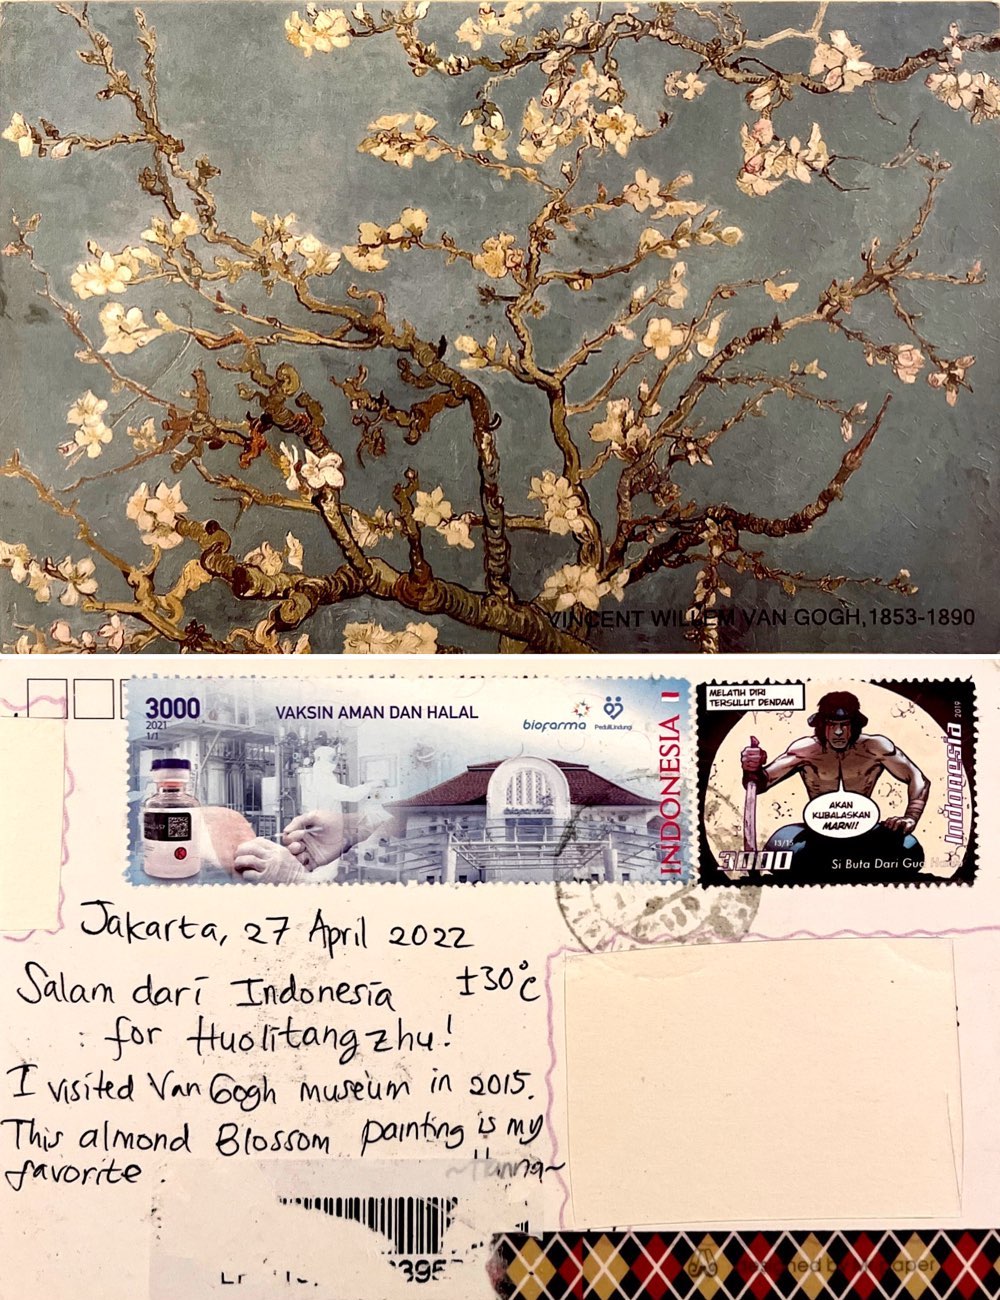 VINCENT WILLEM VAN GOGH,1853-1890
3000
2021
1/1
VAKSIN AMAN DAN HALAL
biofarma
PeduliLindungi
INDONESIA
MELATIH DIRI
TERSULUT DENDAM
2019
indonesia
AKAN
KUBALASKAN
MARNI!!
13/15
3000
Si Buta Dari Gua
Jakarta, 27 April 2022
±30°C
Salam dari Indonesia
for Huolitangzhu!
I visited Van Gogh museum in 2015.
This almond Blossom painting is my
favorite.
~Hanna~
designed by paper